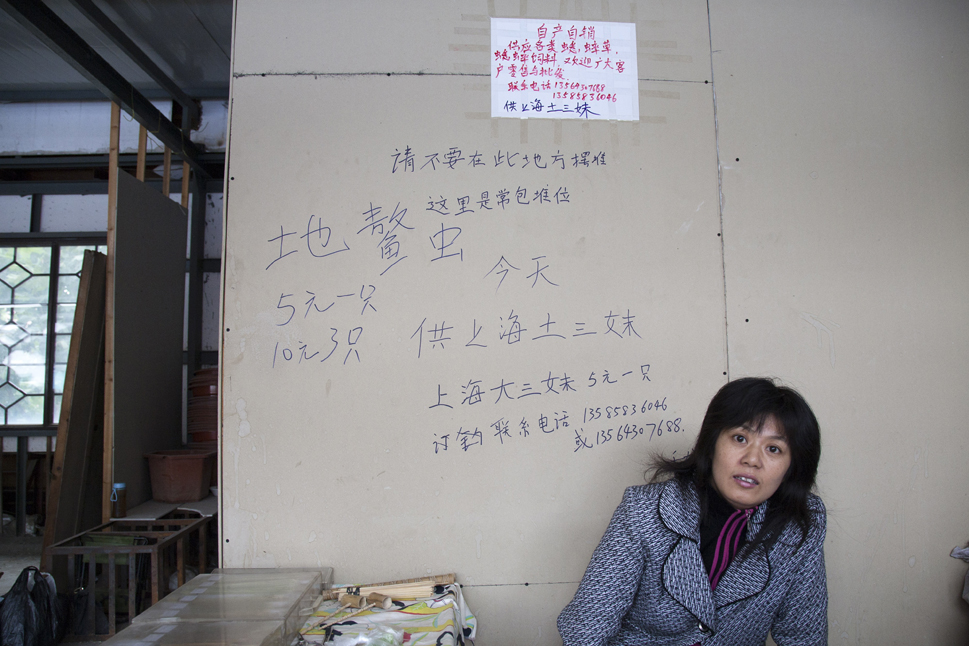 自产自销
供应各类蟋蟀草,
蟋蟀饲料 欢迎广大客
户零售与批发
联系电话13564307688
13585836046
供上海土三妹
請不要在此地方摆堆
这里是常包堆位
地鳖虫
今天
5元一只
10元3只
供上海土三妹
上海大三妹 5元一只
订 联系电话 13585836046
或13564307688.